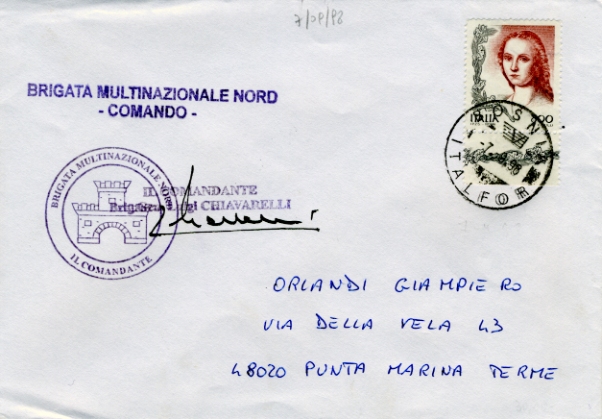 7/08/98
BRIGATA MULTINAZIONALE NORD
- COMANDO -
ITALIA 800
BOSNIA
ITALFOR
BRIGATA MULTINAZIONALE NORD
IL COMANDANTE
IL COMANDANTE
CHIAVARELLI
ORLANDI GIAMPIERO
VIA DELLA VELA 43
48020 PUNTA MARINA TERME